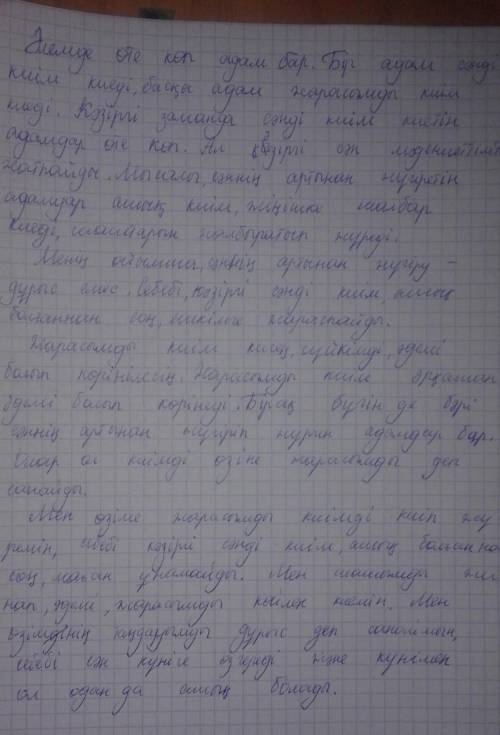 Әлемде өте көп адам бар. Бұл адам сәнді
киім киеді, басқа адам жарасымды киім
киеді. Қәзіргі заманда сәнді киім киетін
адамдар өте көп. Ал қәзіргі сән мәдениетімізге
жатпайды. Мысалы, сәннің артынан жүгіретін
адамдар ашық киім, жіңішке шалбар
киеді, шаштарын жалбыратып жүреді.
Менің ойымша, сәннің артынан жүгіру -
дұрыс емес. Себебі, қәзіргі сәнді киім, ашық
болғаннан соң, ешкімге жараспайды.
Жарасымды киім кисең, сүйкімді, әдемі
болып көрінілсің. Жарасымды киім әрқашан
әдемі болып көрінеді. Бірақ бүгін де бәрі
сәннің артынан жүгіріп жүрген адамдар бар.
Олар ол киімді өзіне жарасымды деп
санайды.
Мен өзіме жарасымды киімді киіп жү
ремін, себебі қәзіргі сәнді киім, ашық болғанна
соң, маған ұнамайды. Мен шашымды жи
нап, әдемі, жарасымды көйлек киемін. Мен
өзімдінің таңдауымды дұрыс деп санаймын,
себебі сән күніге өзгереді және күнімен
ол одан да ашық болады.